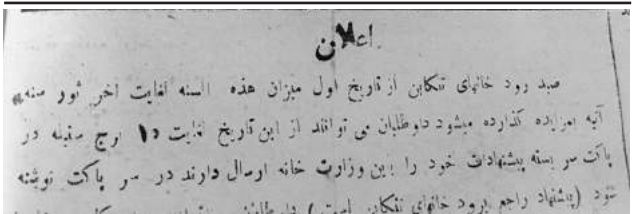 اعلان
صید رود خانهای تنکابن از تاریخ اول میزان هذه السنه لغایت اخر ثور سنه
آتیه بمزایده گذارده میشود داوطلبان می توانند از این تاریخ لغایت ۱۵ برج سنبله در
پاکت سر بسته پیشنهادات خود را باین وزارت خانه ارسال دارند در سر پاکت نوشته
شود (پیشنهاد راجع برود خانهای تنکابن است)